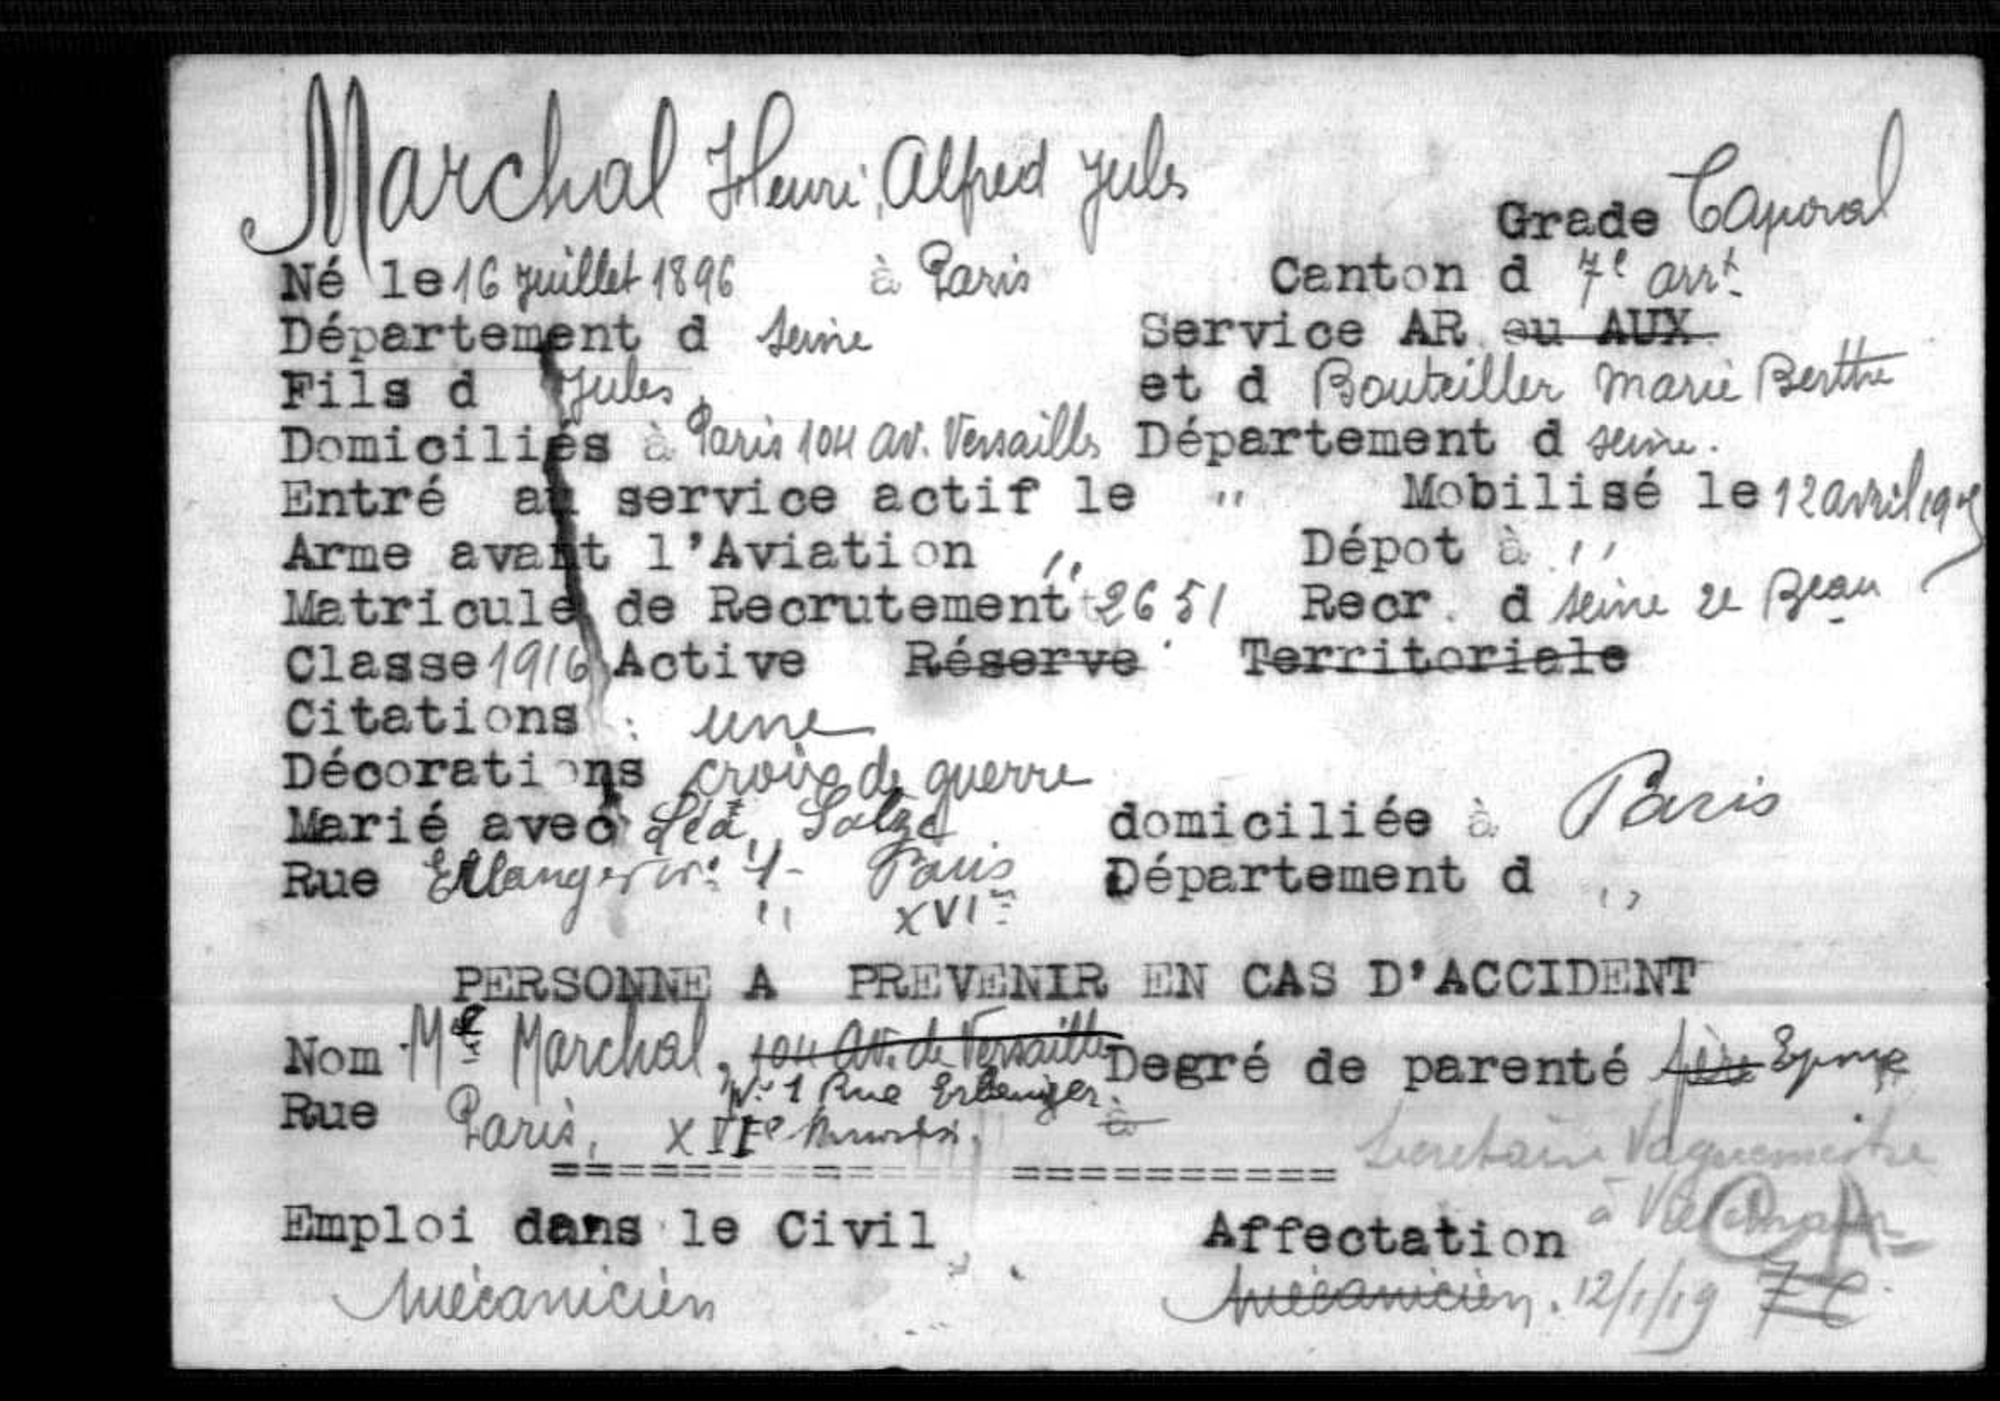 Marchal Henri, Alfred Jules
Grade Caporal
Né le 16 juillet 1896 à Paris Canton d 7e arrt
Département d Seine Service AR ou AUX
Fils d Jules, et d Bouteiller Marie Berthe
Domiciliés à Paris 104 av. Versailles Département d Seine.
Entré au service actif le " Mobilisé le 12 avril
Arme avant l'Aviation " Dépot à "
Matricule de Recrutement 2651 Recr. d Seine 2e Beau
Classe 1916 Active Réserve Territoriale
Citations : une
Décorations croix de guerre
Marié avec Léa domiciliée à Paris
Rue Erlanger Paris Département d "
" XVIe
PERSONNE A PREVENIR EN CAS D'ACCIDENT
Nom Me Marchal, 104 Av. de Versailles Degré de parenté Epouse
No 1 Rue Erlanger.
Rue Paris, XVIe à
====================
Secretaire Vaguemestre
Emploi dans le Civil Affectation à CA
Mécanicien Mécanicien. 12/1/19